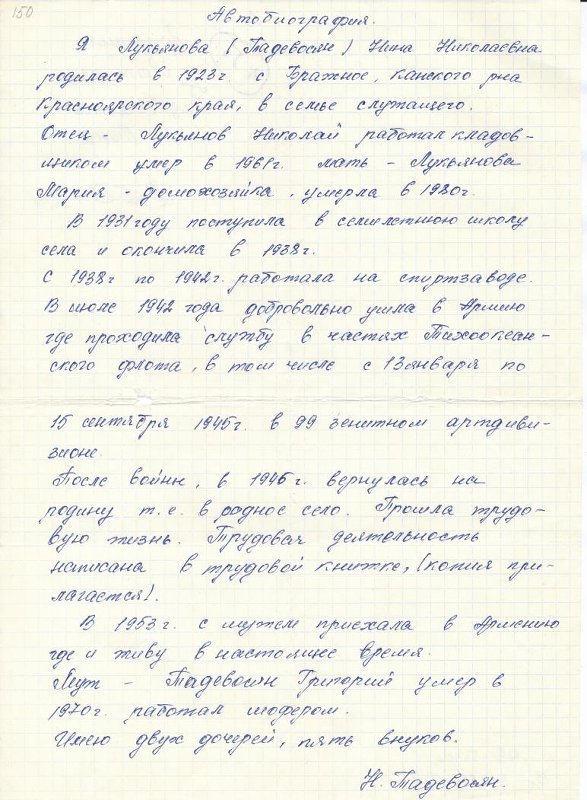 150
Автобиография.
Я Лукьянова (Тадевосян) Нина Николаевна
родилась в 1923г. с Бражное, Канского р-на
Красноярского края, в семье служащего.
Отец - Лукьянов Николай работал кладов-
щиком умер в 1961г. мать - Лукьянова
Мария - домохозяйка, умерла в 1980г.
В 1931 году поступила в семилетнюю школу
села и окончила в 1938г.
С 1938г по 1942г. работала на спиртзаводе.
В июле 1942 года добровольно ушла в Армию
где проходила службу в частях Тихоокеан-
ского флота, в том числе с 13 января по
15 сентября 1945г. в 99 зенитном артдиви-
зионе.
После войны, в 1945г. вернулась на
родину т.е. в родное село. Прошла трудо-
вую жизнь. Трудовая деятельность
написана в трудовой книжке, (копия при-
лагается).
В 1953г. с мужем приехала в Армению
где и живу в настоящее время.
Муж - Тадевосян Григорий умер в
1970г. работал шофером.
Имею двух дочерей, пять внуков.
Н. Тадевосян.